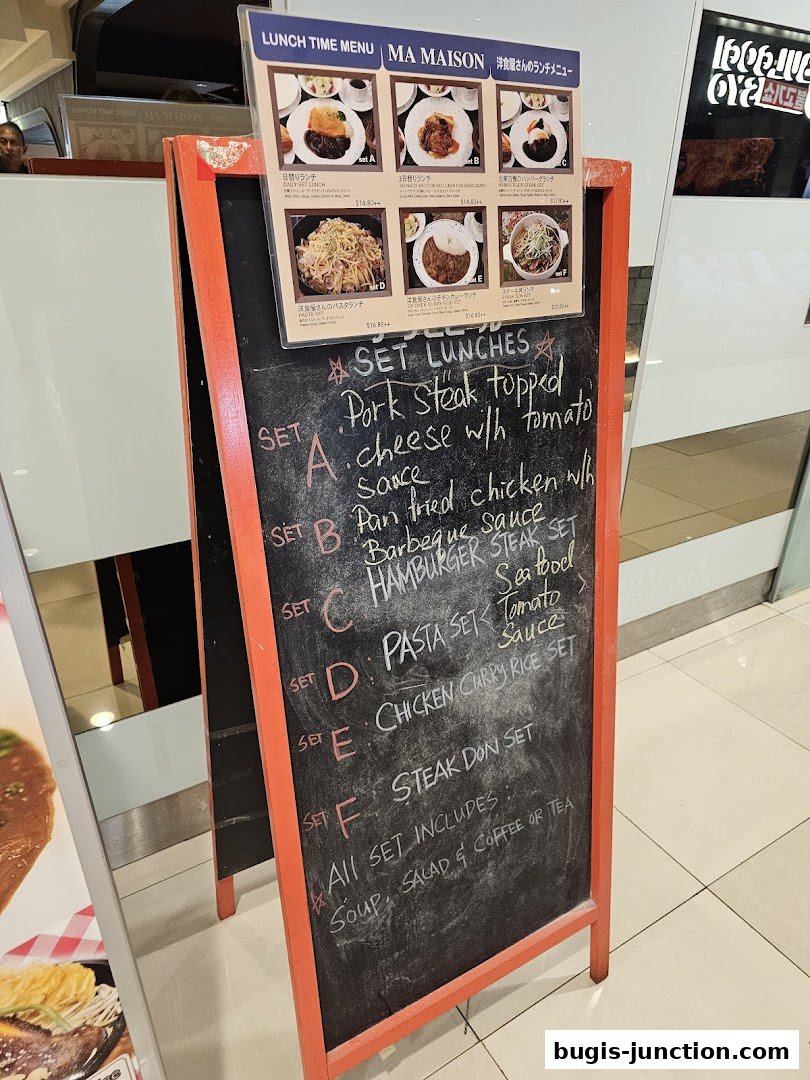 LUNCH TIME MENU
MA MAISON
洋食屋さんのランチメニュー
set A
set B
set C
日替りランチ
DAILY SET LUNCH
$14.80++
$14.80++
HAMBURGER STEAK SET
$17.80++
set D
set E
set F
洋食屋さんのパスタランチ
PASTA SET
$16.80++
洋食屋さんのチキンカレーランチ
CHICKEN CURRY RICE SET
$16.80++
ステーキ丼ランチ
STEAK DON SET
$20.80++
SET LUNCHES
SET A
Pork steak topped
cheese w/h tomato
sauce
SET B
Pan fried chicken w/h
Barbeque sauce
SET C
HAMBURGER STEAK SET
SET D: PASTA SET <
Seafood
Tomato
Sauce >
SET E: CHICKEN CURRY RICE SET
SET F: STEAK DON SET
All SET INCLUDES:
SOUP, SALAD & COFFEE OR TEA
bugis-junction.com